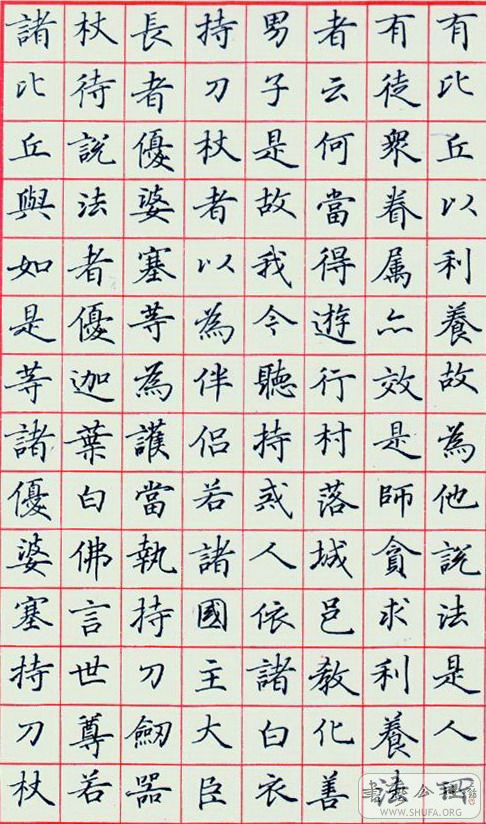 有比丘以利養故為他說法是人
有徒衆眷属亦效是師貪求利養法
者云何當得遊行村落城邑教化善
男子是故我今聽持戒人依諸白衣
持刀杖者以為伴侶若諸國主大臣
長者優婆塞等為護當執持刀劒器
杖待說法者優迦葉白佛言世尊若
諸比丘與如是等諸優婆塞持刀杖
WWW.SHUFA.ORG